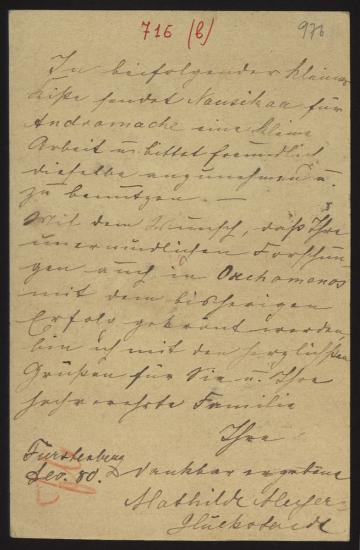 716 (b) 976
In beifolgender kleiner
Kiste sendet Nausikaa für
Andromache eine kleine
Arbeit u. bittet freundlich
dieselbe anzunehmen u.
zu benutzen. —
Mit dem Wunsch, daß Ihre
unermüdlichen Forschun-
gen auch in Orchomenos
mit dem bisherigen
Erfolg gekrönt werden,
bin ich mit den herzlichsten
Grüßen für Sie u. Ihre
hochverehrte Familie
Ihre
Fürstenberg
80. dankbar ergebene
Mathilde Meyer-
Glückstadt